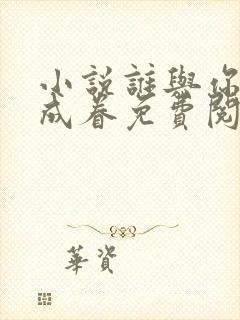 小說誰與你
成眷免費閱
華資